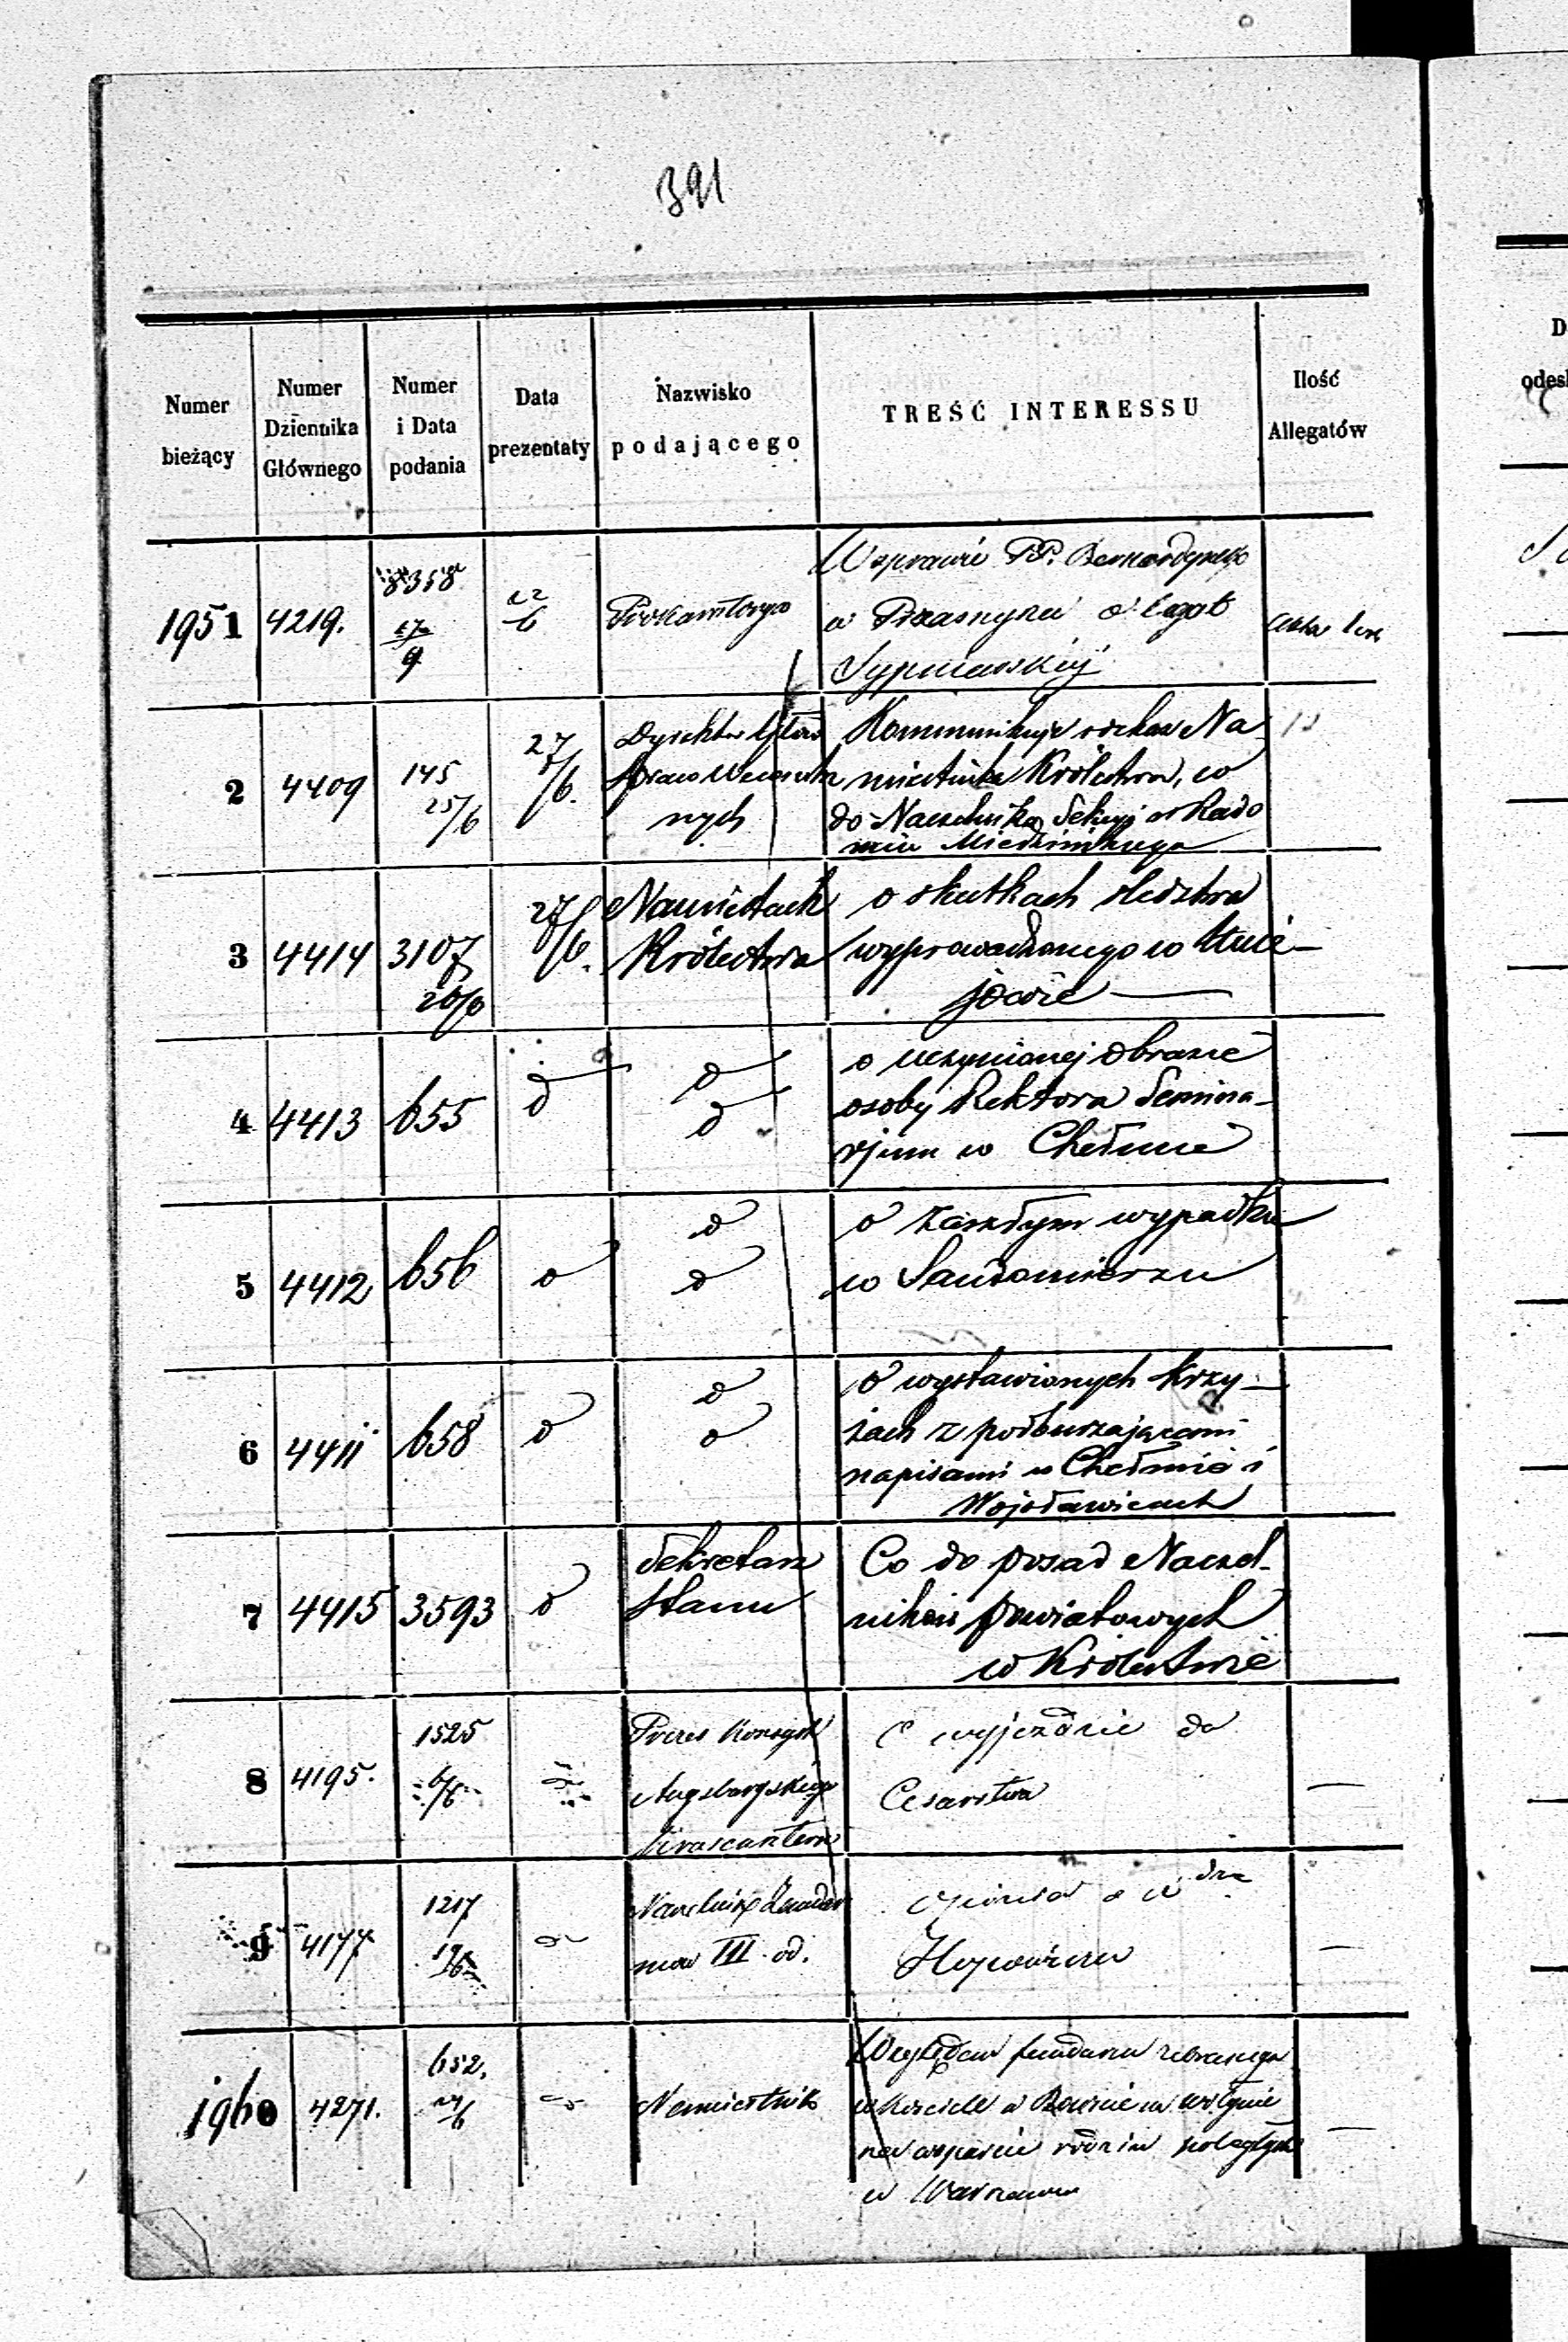 391
Numer bieżący
Numer Dziennika Głównego
Numer i Data podania
Data prezentaty
Nazwisko podającego
TREŚĆ INTERESSU
Ilość Allegatów
D
odesł
1951 4219. 8358
W sprawie PP. Bernardynek
w Przasnyszu o legat
Sypniewskiej
2 4409 145 25/6 27/6.
Dyrektor
Spraw
nych
Kommunikuje rozkaz Na
miestnika Królestwa, co
do Naczelnika Sekcyi w Rado
miu
3 4414 3107 26/6 27/6.
Namiestnik
Królestwa
o skutkach śledztwa
wyprowadzonego w
jowie —
4 4413 655 d d d
o uczynionej obrazie
osoby Rektora Semina-
rjum w Chełmie
5 4412 656 d d d
o zaszłym wypadku
w Sandomierzu
6 4411 658 d d d
o wystawionych krzy-
żach z podburzającemi
napisami w Chełmie i
Wojsławicach
7 4415 3593 d
Sekretarz
Stanu
Co do posad Naczel-
ników powiatowych
w Królestwie
8 4195. 1525 6/6
Prezes Konsyst
Augsburgskiego
O wyjeździe do
Cesarstwa
—
9 4177 1217
Naczelnik
III od.
—
1960 4271. 652. 24/6
Namiestnik
Względem funduszu zebranego
w kościele w Równie na Wołyniu
na wsparcie rodzin poległych
w Warszawie
—